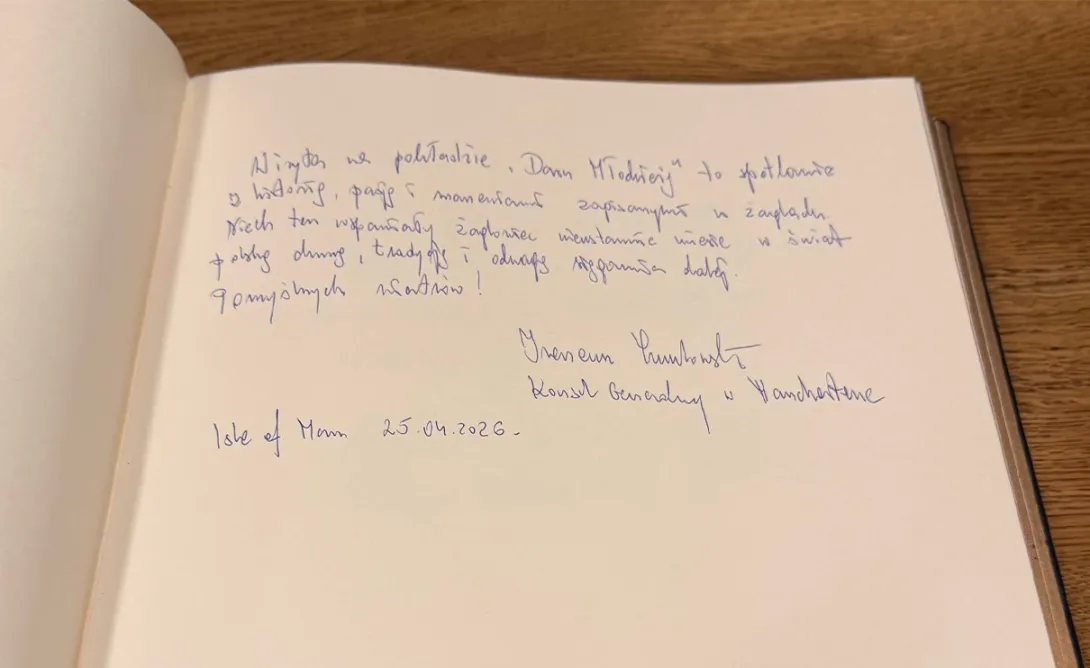 Wizyta na pokładzie „Daru Młodzieży" to spotkanie
z historią, pasją i marzeniami zapisanymi w żaglach.
Niech ten wspaniały żaglowiec nieustannie niesie w świat
polską dumę, tradycję i odwagę sięgania dalej.
Pomyślnych wiatrów!
Ireneusz
Konsul Generalny w Manchesterze
Isle of Man 25.04.2026.